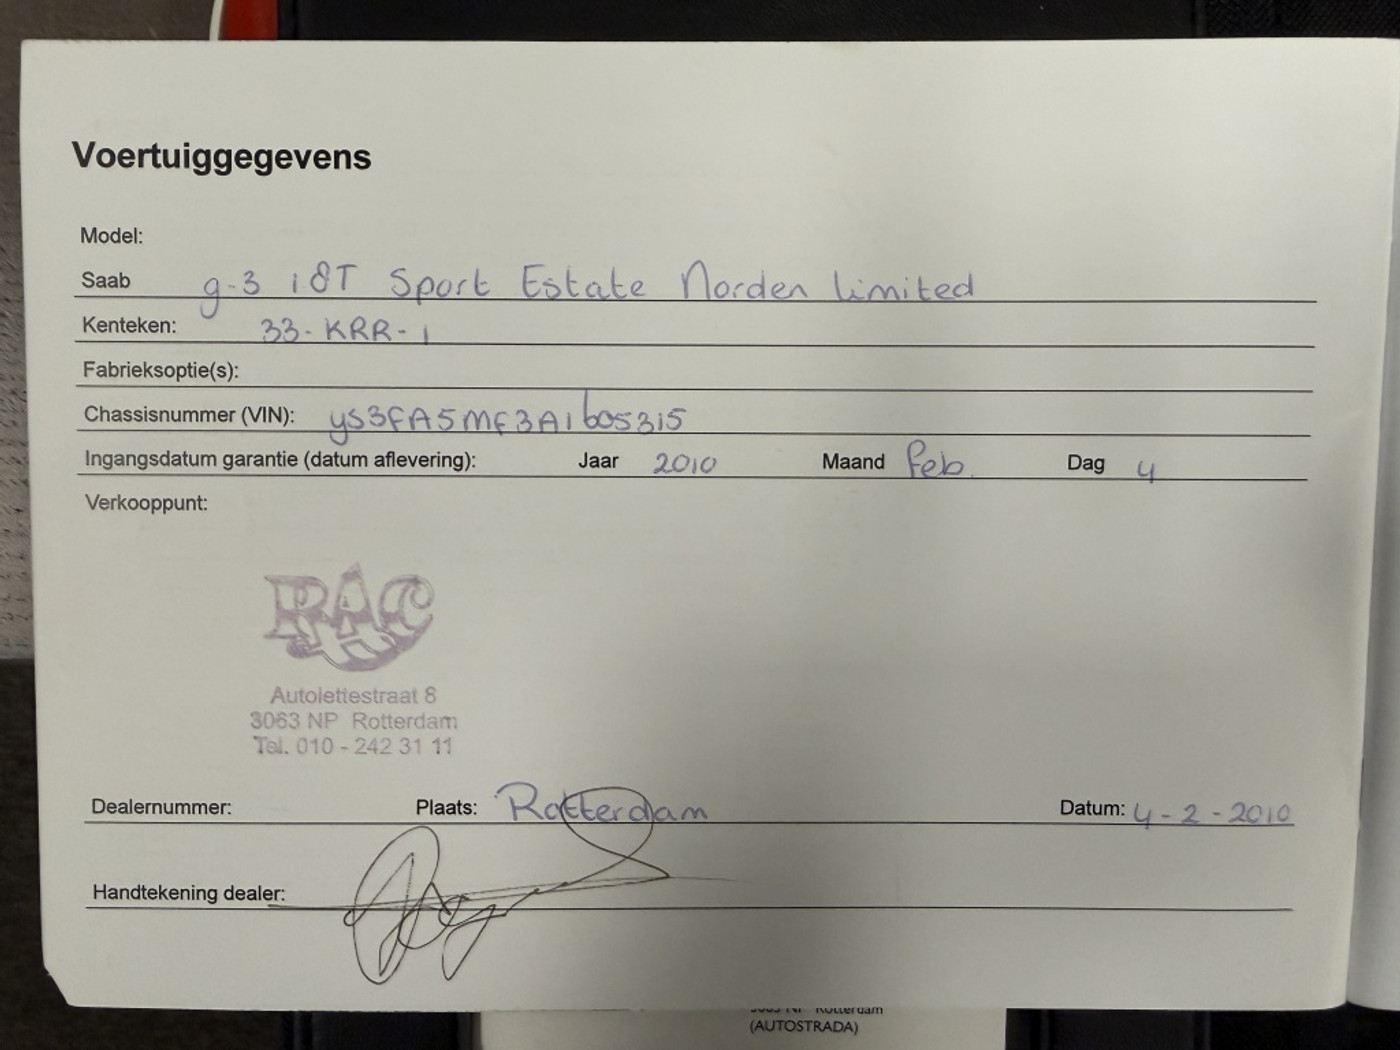 Voertuiggegevens
Model:
Saab g-3 1 8T Sport Estate Norden limited
Kenteken: 33-KRR-1
Fabrieksoptie(s):
Chassisnummer (VIN): YS3FA5MF3A1605315
Ingangsdatum garantie (datum aflevering): Jaar 2010 Maand Feb. Dag 4
Verkooppunt:
RAC
Autolettestraat 8
3063 NP Rotterdam
Tel. 010 - 242 31 11
Dealernummer: Plaats: Rotterdam Datum: 4-2-2010
Handtekening dealer:
3063 NP Rotterdam
(AUTOSTRADA)